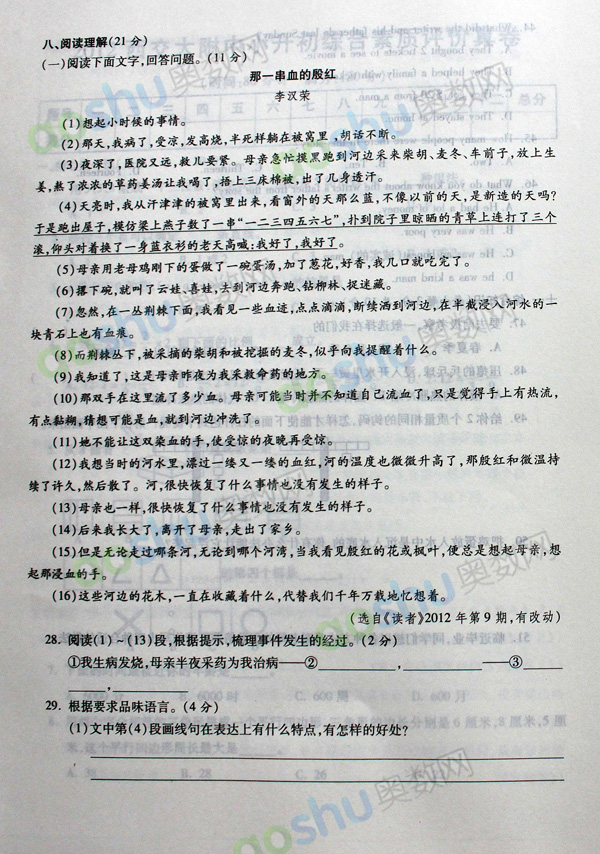 八、阅读理解(21分)
(一)阅读下面文字,回答问题。(11分)
那一串血的殷红
李汉荣
(1)想起小时候的事情。
(2)那天,我病了,受凉,发高烧,半死样躺在被窝里,胡话不断。
(3)夜深了,医院又远,救儿要紧。母亲急忙摸黑跑到河边采来柴胡、麦冬、车前子,放上生
姜,熬了浓浓的草药姜汤让我喝了,捂上三床棉被,出了几身透汗。
(4)天亮时,我从汗津津的被窝里出来,看窗外的天那么蓝,不像以前的天,是新造的天吗?
于是跑出屋子,模仿梁上燕子数了一串“一二三四五六七”,扑到院子里晾晒的青草上连打了三个
滚,仰头对着换了一身蓝衣衫的老天高喊:我好了,我好了。
(5)母亲用老母鸡刚下的蛋做了一碗蛋汤,加了葱花,好香,我几口就吃完了。
(6)撂下碗,就叫了云娃、喜娃,去到河边奔跑、钻柳林、捉迷藏。
(7)忽然,在一丛荆棘下面,我看见一些血迹,点点滴滴,断续洒到河边,在半截浸入河水的一
块青石上也有血痕。
(8)而荆棘丛下,被采摘的柴胡和被挖掘的麦冬,似乎向我提醒着什么。
(9)我知道了,这是母亲昨夜为我采救命药的地方。
(10)那双手在这里流了多少血。母亲可能当时并不知道自己流血了,只是觉得手上有热流,
有点黏糊,猜想可能是血,就到河边冲洗了。
(11)她不能让这双染血的手,使受惊的夜晚再受惊。
(12)我想当时的河水里,漂过一缕又一缕的血红,河的温度也微微升高了,那殷红和微温持
续了许久,然后散了。河,很快恢复了什么事情也没有发生的样子。
(13)母亲也一样,很快恢复了什么事情也没有发生的样子。
(14)后来我长大了,离开了母亲,走出了家乡。
(15)但是无论走过哪条河,无论到哪个河湾,当我看见殷红的花或枫叶,便总是想起母亲,想
起那浸血的手。
(16)这些河边的花木,一直在收藏着什么,代替我们千年万载地忆想着。
(选自《读者》2012年第9期,有改动)
28. 阅读(1)~(13)段,根据提示,梳理事件发生的经过。(2分)
①我生病发烧,母亲半夜采药为我治病——②____________,____________——③____
29. 根据要求品味语言。(4分)
(1)文中第(4)段画线句在表达上有什么特点,有怎样的好处?
goshu奥数网